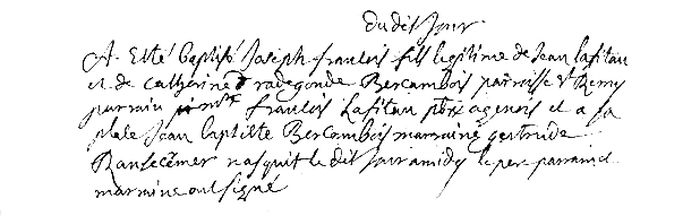 du dit Jour
A Esté baptisé Joseph francois fils legitime de Jean Lafitau
et de Catherine radegonde Bercambois paroisse St Remy
parrain mre francois Lafitau ptre agenois et a sa
place Jean baptiste Bercambois marraine gertrude
nasquit le dit Jour a midy le pere parrain et
marraine ont signé